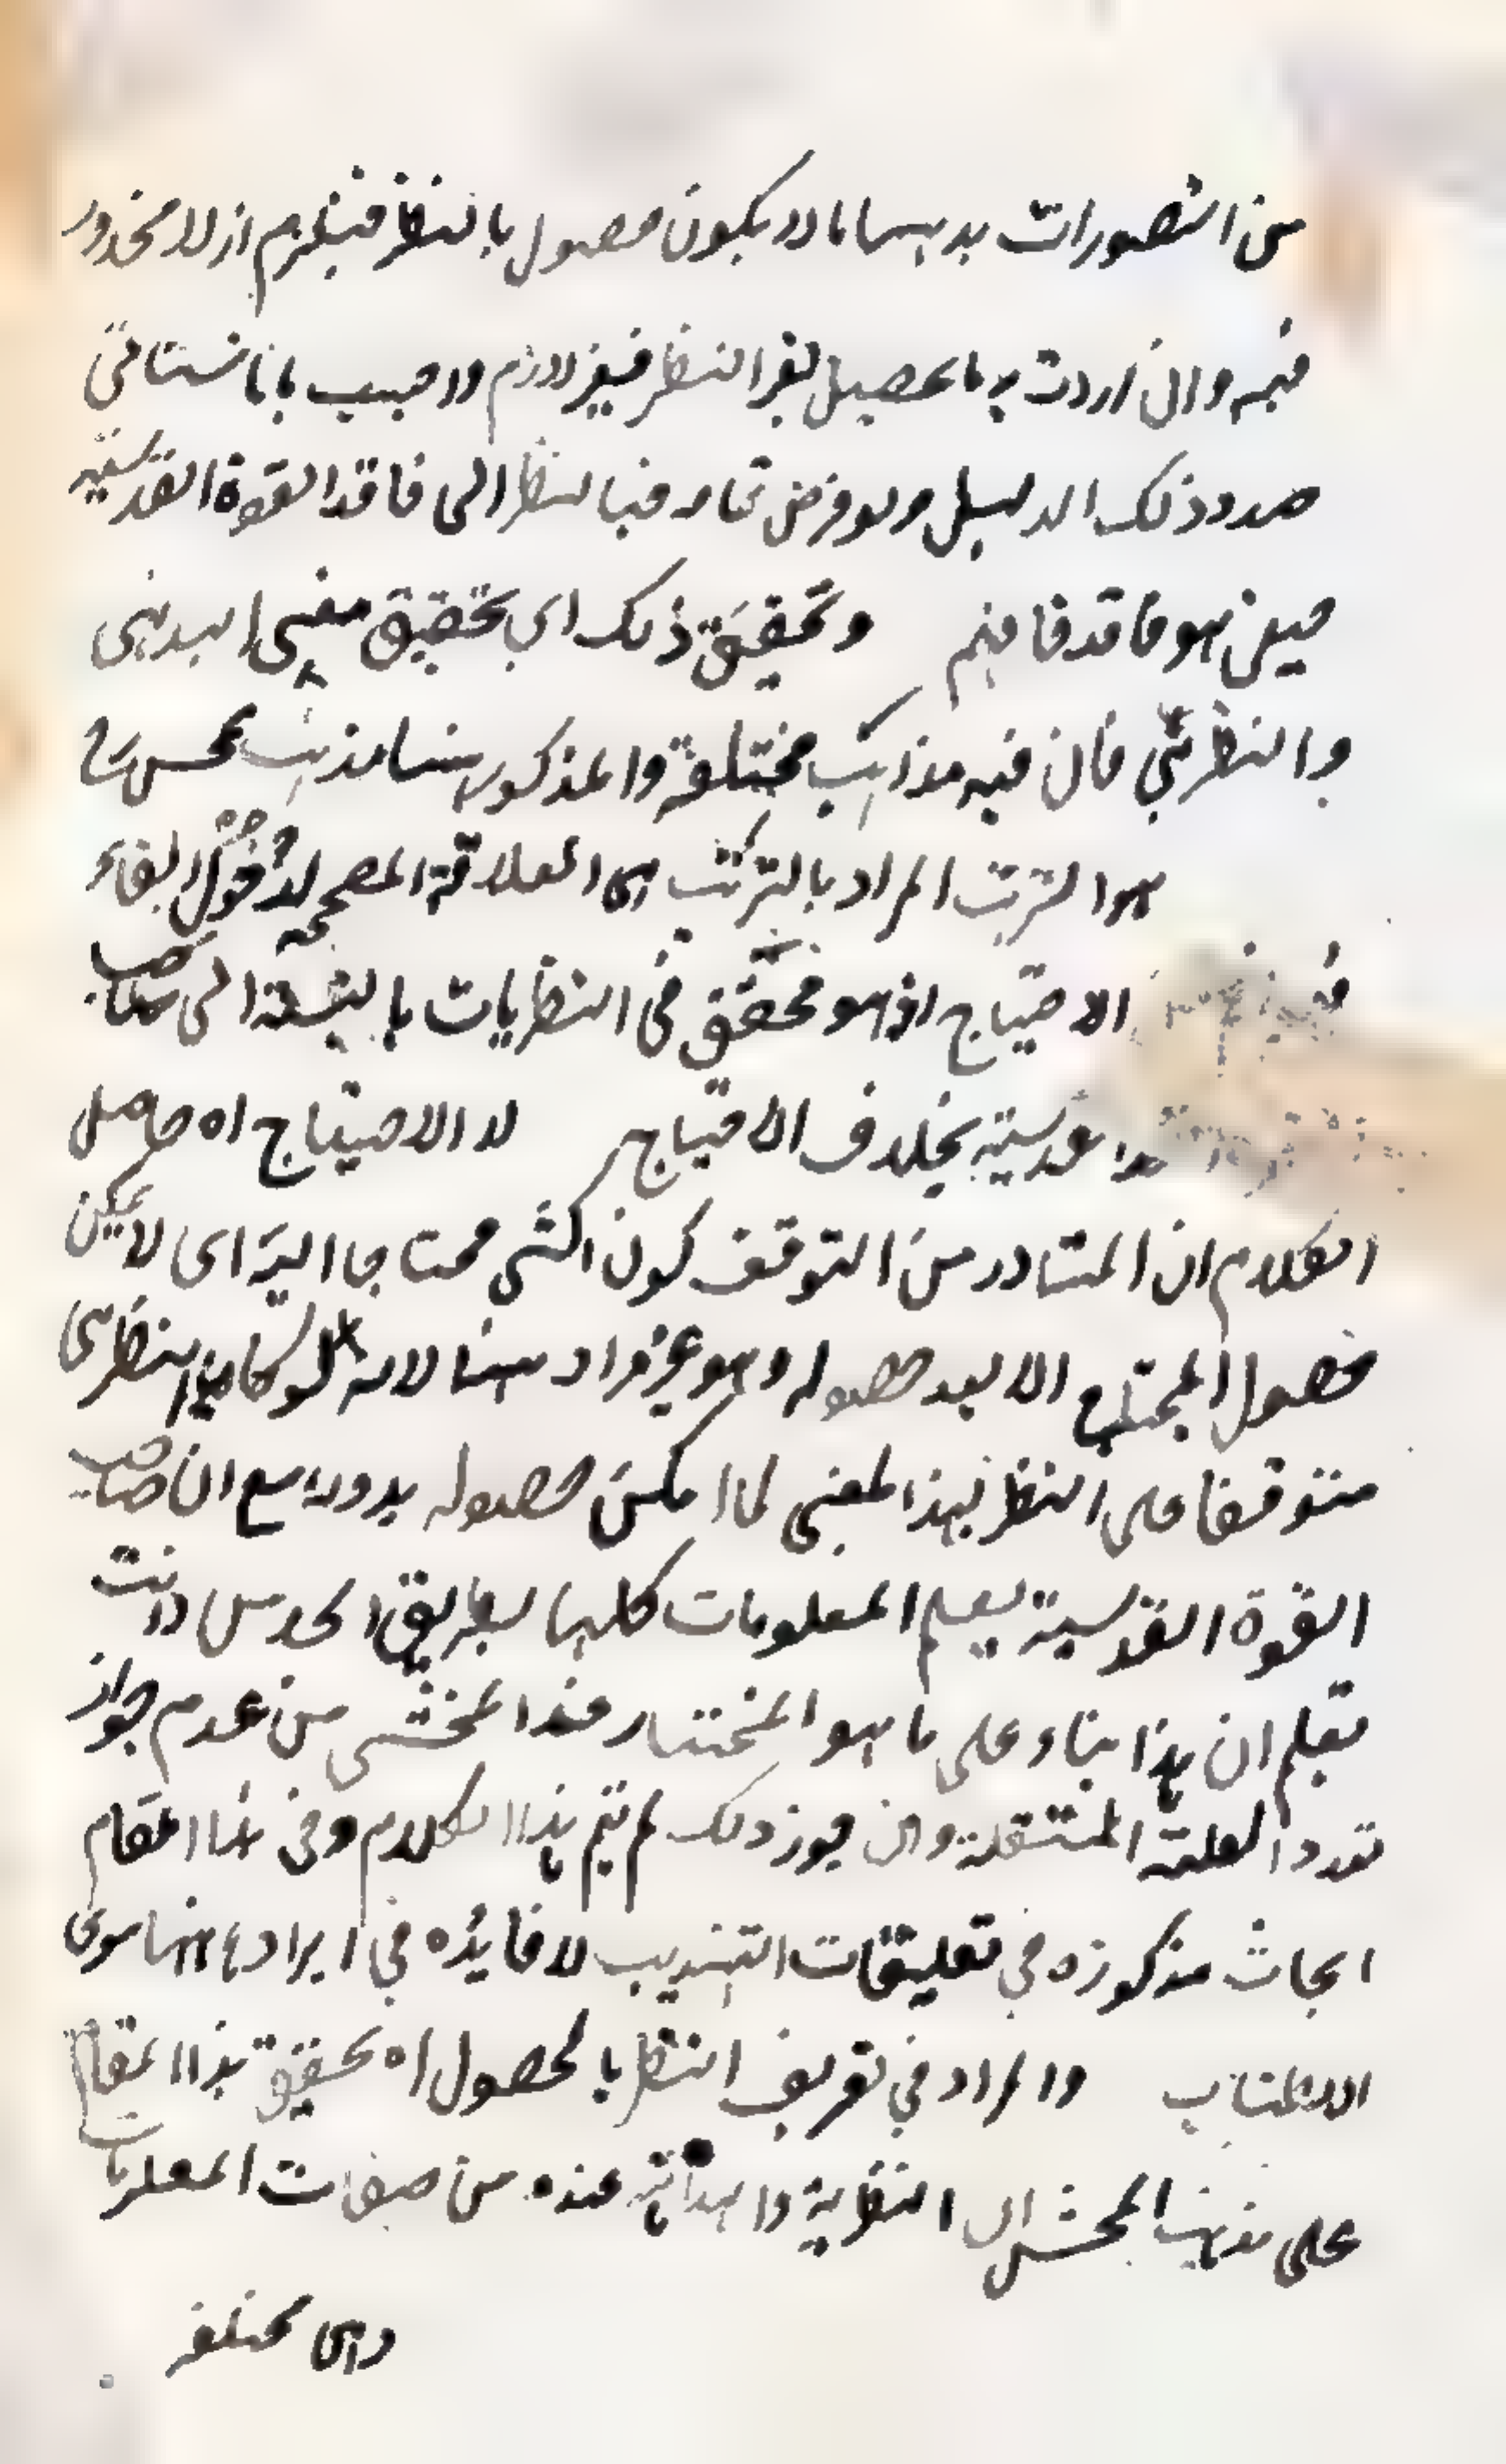 من التصورات بديهيا ما لا يكون حصول بالنظر فيلزم اذ لا محذور
فيه وان اردت به ما يحصل بغير النظر فغير لازم واجيب بانا نستأنف
ذلك الدليل ولو فرض تمامه فبالنظر الى فاقد القوة القدسية
حين هو فاقد فافهم وتحقيق ذلك اي تحقيق معنى البديهى
والنظرى فان فيه مذاهب مختلفة والمذكور هنا مذهب المحشى
هو الترتب المراد بالترتب هى العلاقة المصححة لدخول الفاء
الاحتياج اذ هو محقق فى النظريات بالنسبة الى صاحب
القدسية بخلاف الاحتياج لا الاحتياج اه حاصل
الكلام ان المتبادر من التوقف كون الشى محتاجا اليه اى لا يمكن
حصول المحتاج الا بعد حصوله وهو غير مراد هنا لانه لو كان النظرى
متوقفا على النظر بهذا المعنى لما امكن حصوله بدونه مع ان صاحب
القوة القدسية يعلم المعلومات كلها بطريق الحدس وانت
تعلم ان هذا بناء على ما هو المختار عند المحشى من عدم جواز
تعدد العلة المستقلة وان جوز ذلك لم يتم هذا الكلام وفى هذا المقام
ابحاث مذكورة في تعليقات التهذيب لا فائدة في ايرادها هنا سوى
الاطناب والمراد في تعريف النظر بالحصول اه تحقيق هذا المقام
على مذهب المحشى ان النظرية والبداهة عنده من صفات المعلومات
وهى مختلفة